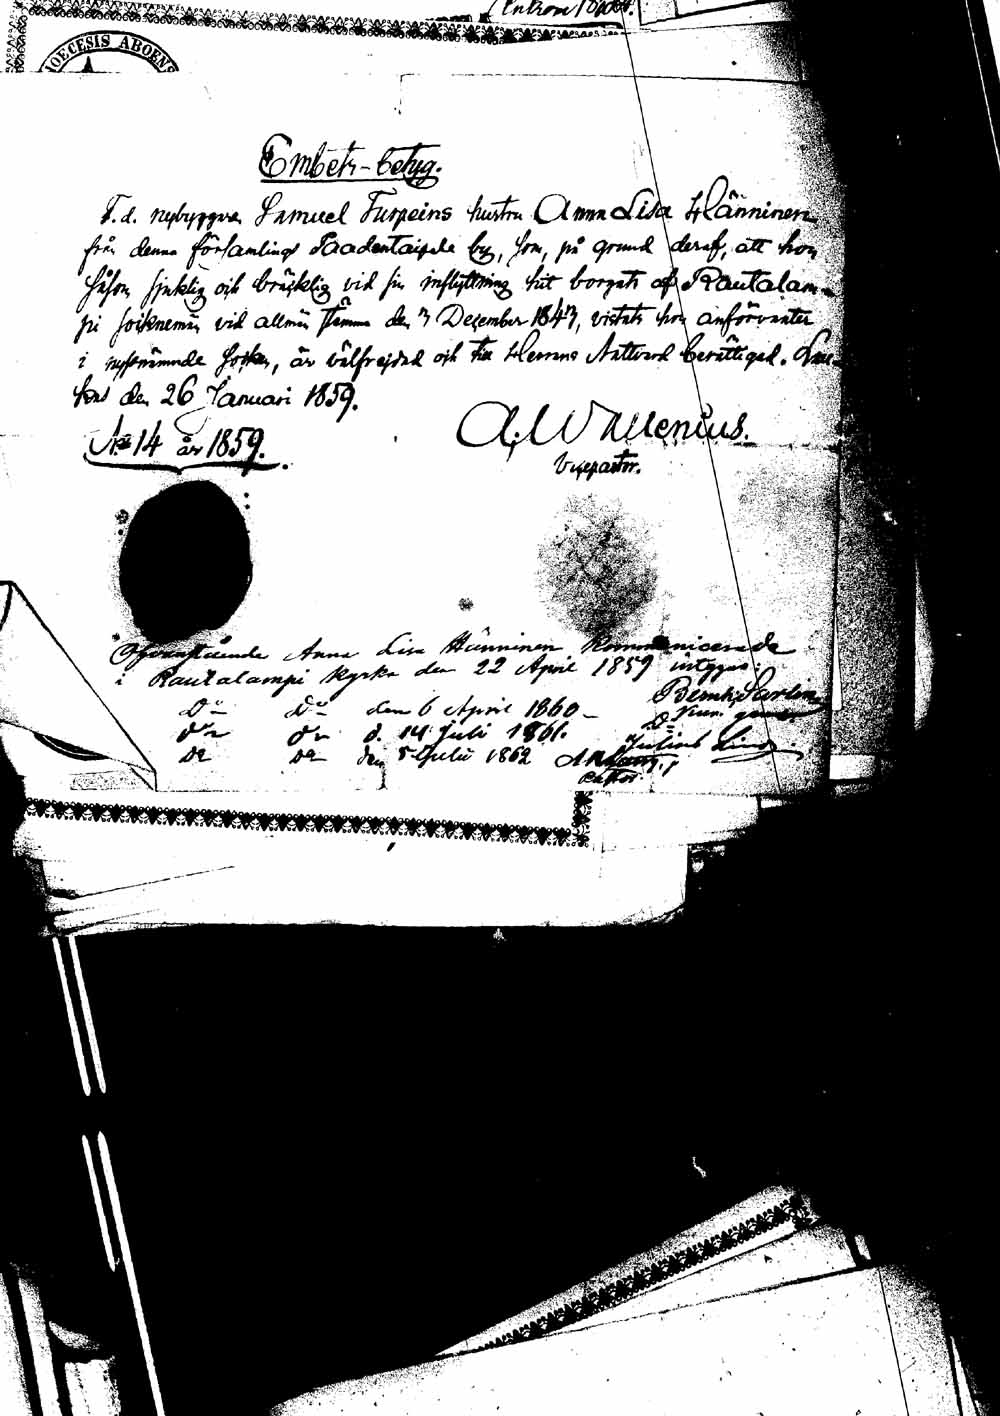 DIOECESIS ABOENS
Embets-betyg.
F. d. nybyggaren Samuel Turpeins hustru Anna Lisa Hänninen
från denna församlings Paadentaipale by, som, på grund deraf, att hon
såsom sjuklig och bräcklig vid sin inflyttning hit borgats af Rautalam-
pi socknemän vid allmän stämma den 7 December 1847, vistats hos anförvanter
i nyssnämnde socken, är välfrejdad och till Herrans Nattvard berättigad. Lau-
kas den 26 Januari 1859.
A. Wallenius.
Vicepastor.
No 14 år 1859.
Ofvanstående Anna Lisa Hänninen kommunicerade
i Rautalampi kyrka den 22 April 1859 intygar:
Bernh. Sarlin
Do Do den 6 April 1860
Do Do d. 14 Juli 1861. Julius
Do Do den 5 Julii 1862
Pastor.